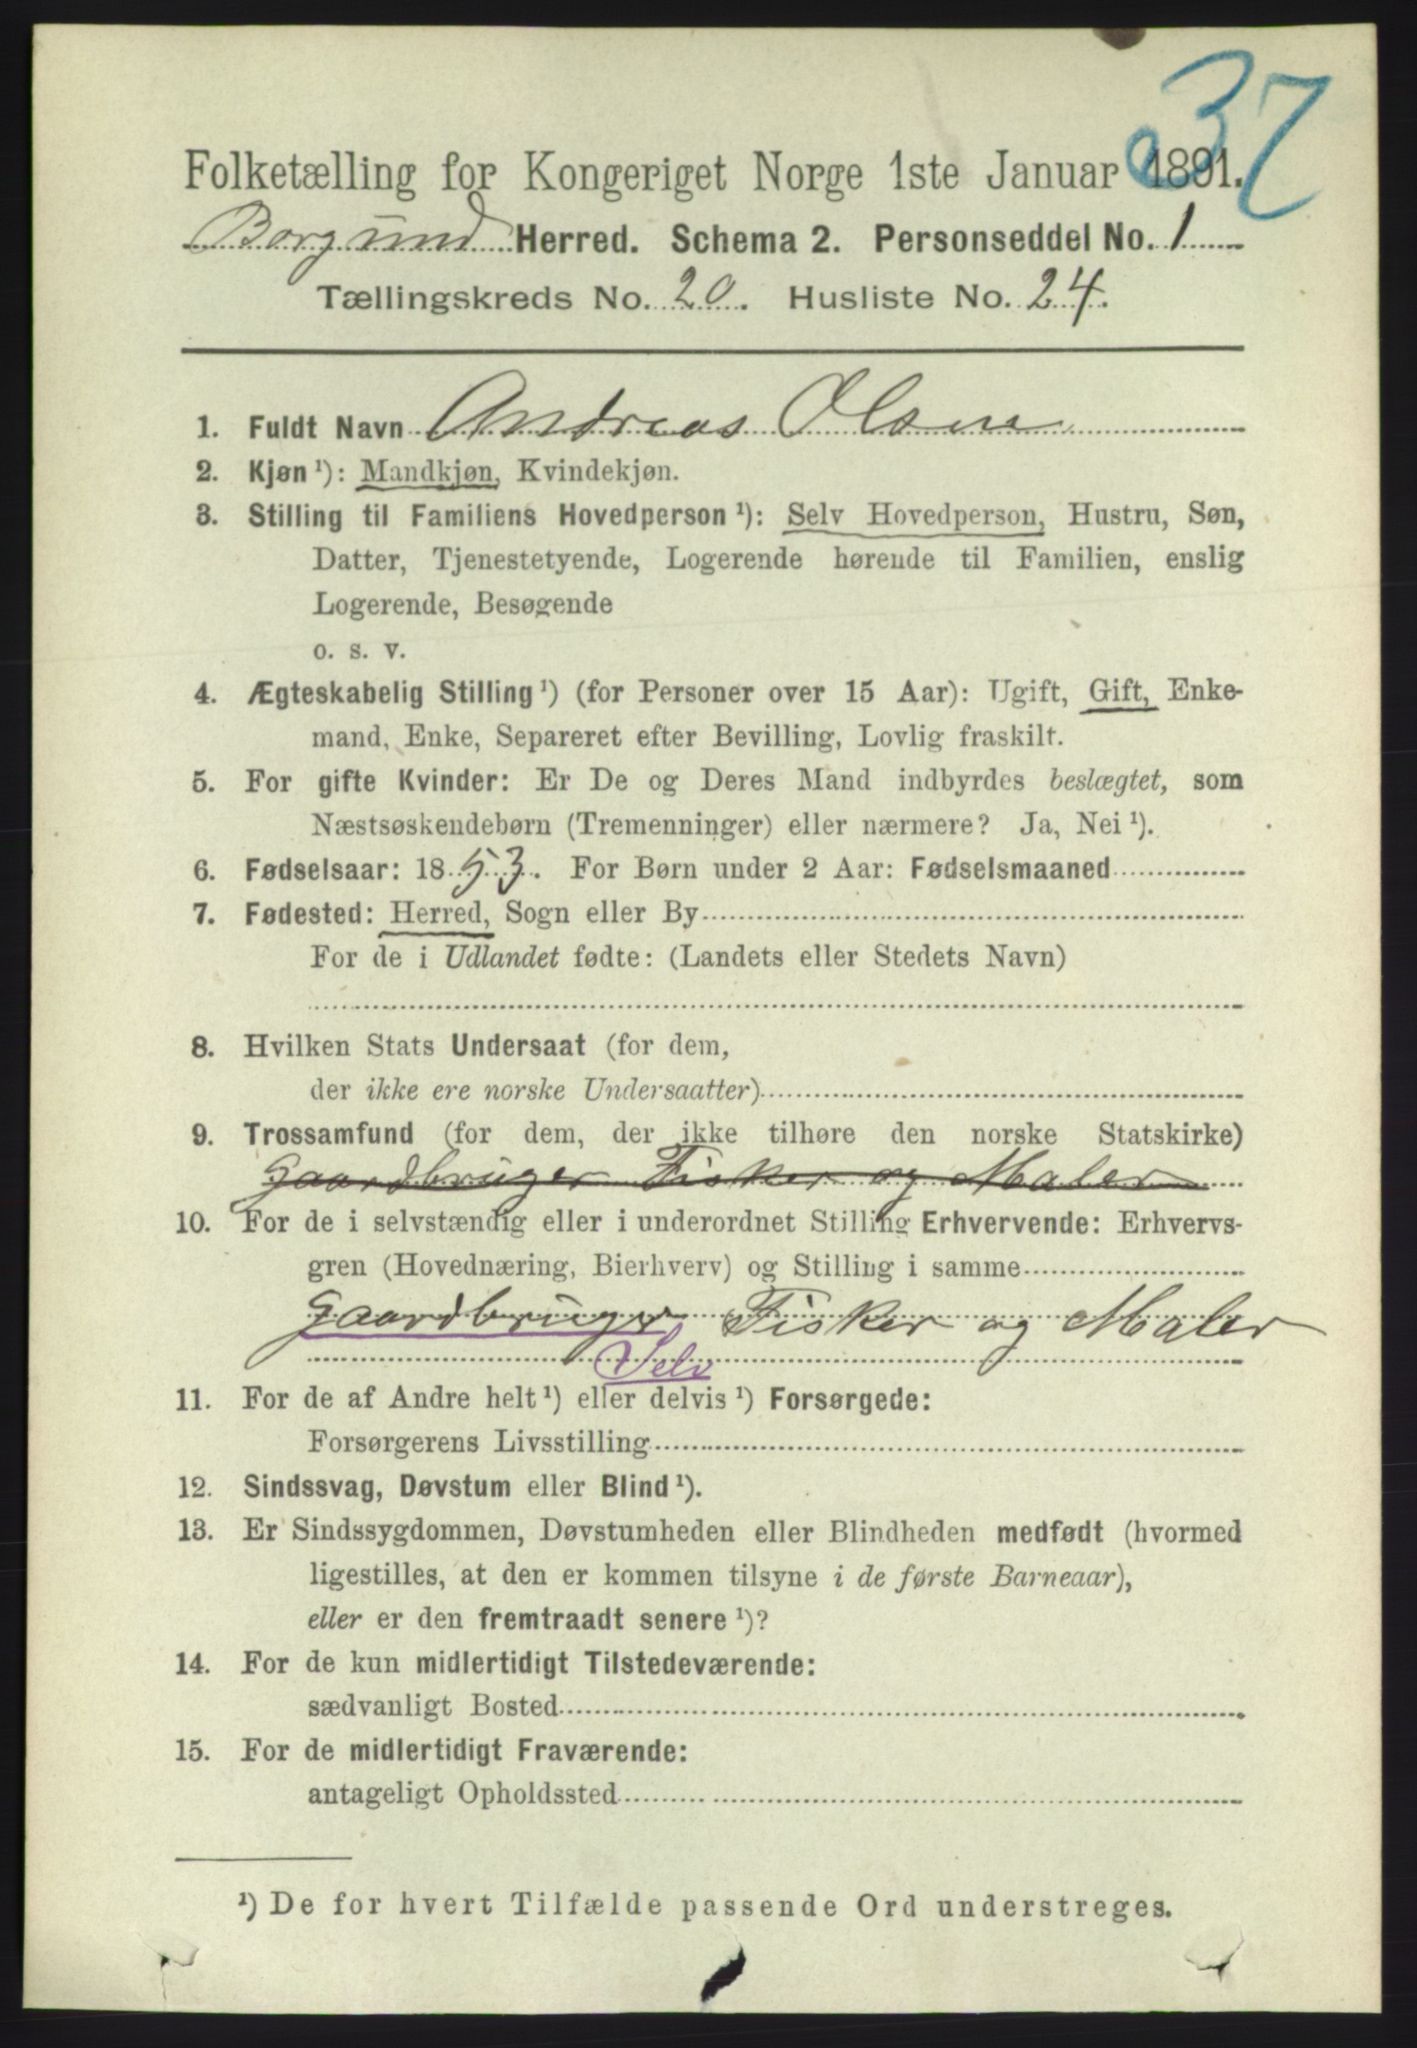 37
Folketælling for Kongeriget Norge 1ste Januar 1891.
Borgund Herred. Schema 2. Personseddel No. 1
Tællingskreds No. 20. Husliste No. 24.
1. Fuldt Navn Andreas Olsen
2. Kjøn ¹): Mandkjøn, Kvindekjøn.
3. Stilling til Familiens Hovedperson ¹): Selv Hovedperson, Hustru, Søn,
Datter, Tjenestetyende, Logerende hørende til Familien, enslig
Logerende, Besøgende
o. s. v.
4. Ægteskabelig Stilling ¹) (for Personer over 15 Aar): Ugift, Gift, Enke-
mand, Enke, Separeret efter Bevilling, Lovlig fraskilt.
5. For gifte Kvinder: Er De og Deres Mand indbyrdes beslægtet, som
Næstsøskendebørn (Tremenninger) eller nærmere? Ja, Nei ¹).
6. Fødselsaar: 1853. For Børn under 2 Aar: Fødselsmaaned
7. Fødested: Herred, Sogn eller By
For de i Udlandet fødte: (Landets eller Stedets Navn)
8. Hvilken Stats Undersaat (for dem,
der ikke ere norske Undersaatter)
9. Trossamfund (for dem, der ikke tilhøre den norske Statskirke)
Gaardbruger Fisker og Maler
10. For de i selvstændig eller i underordnet Stilling Erhvervende: Erhvervs-
gren (Hovednæring, Bierhverv) og Stilling i samme
Gaardbruger Fisker og Maler
Selv
11. For de af Andre helt ¹) eller delvis ¹) Forsørgede:
Forsørgerens Livsstilling
12. Sindssvag, Døvstum eller Blind ¹).
13. Er Sindssygdommen, Døvstumheden eller Blindheden medfødt (hvormed
ligestilles, at den er kommen tilsyne i de første Barneaar),
eller er den fremtraadt senere ¹)?
14. For de kun midlertidigt Tilstedeværende:
sædvanligt Bosted
15. For de midlertidigt Fraværende:
antageligt Opholdssted
¹) De for hvert Tilfælde passende Ord understreges.